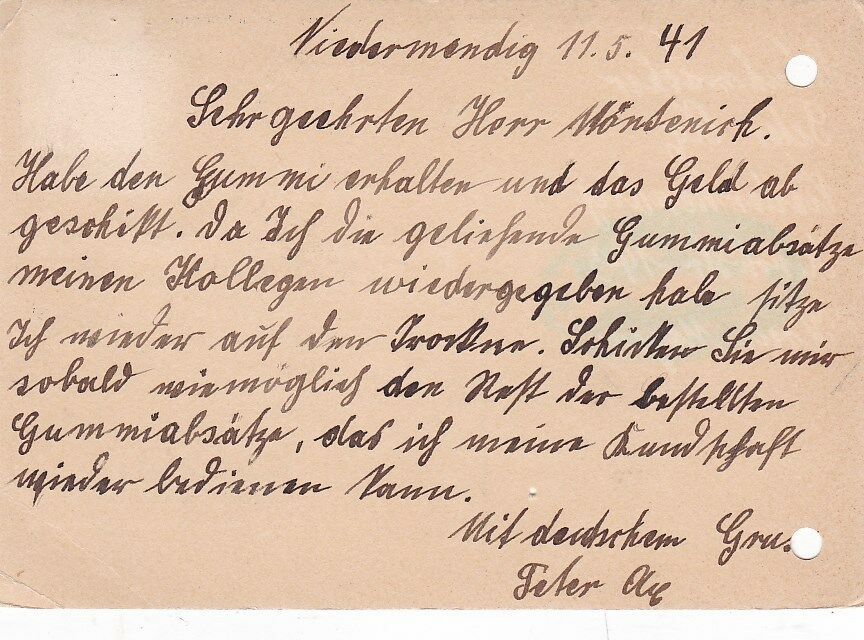 Niedermendig 11.5.41
Sehr geehrten Herr Möntenich.
Habe den Gummi erhalten und das Geld ab
geschikt. Da Ich die geliehende Gummiabsätze
meinen Kollegen wiedergegeben habe sitze
Ich wieder auf den Trockne. Schicken Sie mir
sobald wiemöglich den Rest der bestellten
Gummiabsätze, das ich meine Kundschaft
wieder bedienen kann.
Mit deutschem Gru
Peter Ax